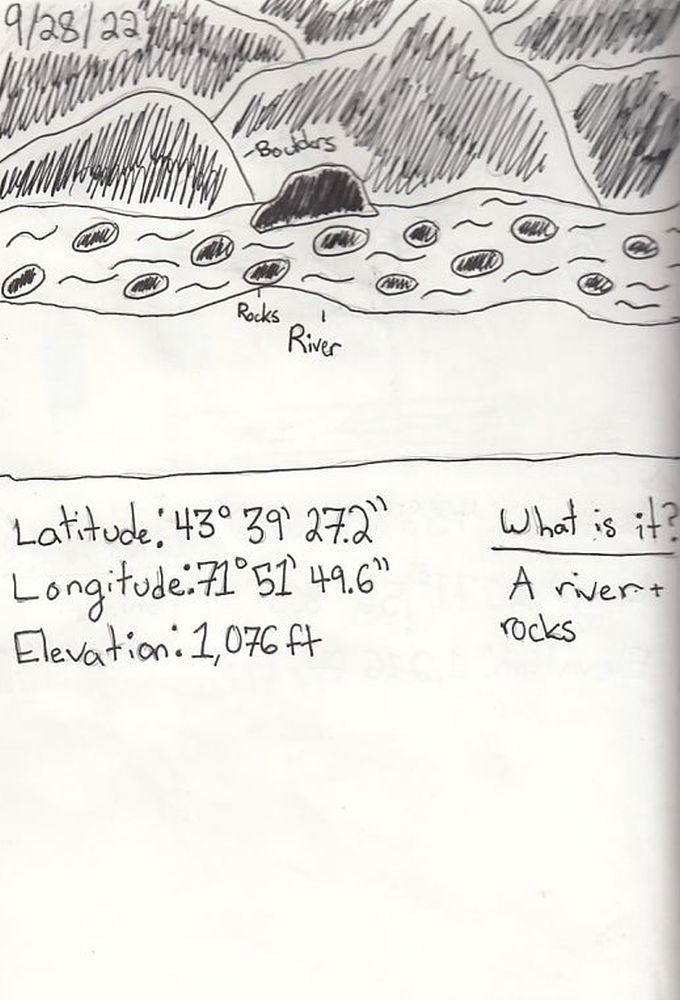 9/28/22
Boulders
Rocks
River
Latitude: 43° 39' 27.2"
Longitude: 71° 51' 49.6"
Elevation: 1,076 ft
What is it?
A river +
rocks